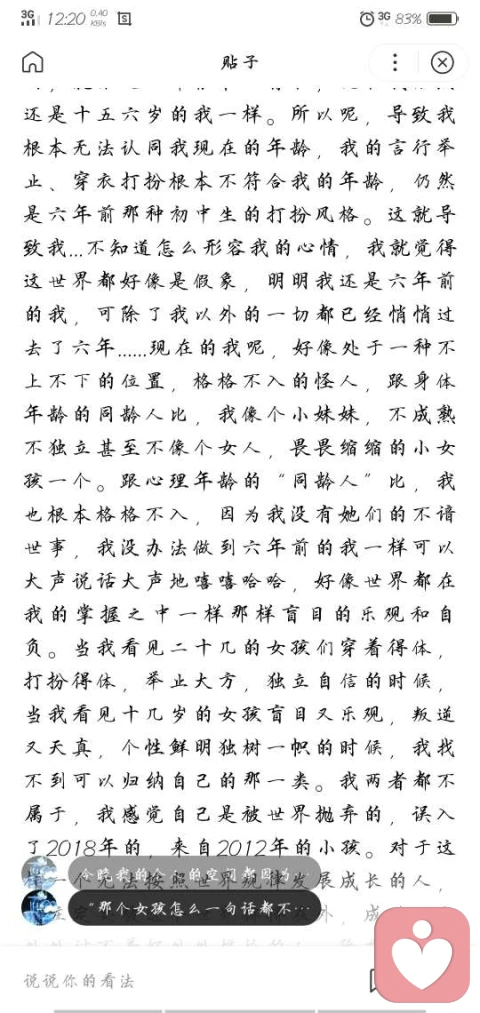 3G 12:20 0.40 KB/s S 3G 83%
贴子
还是十五六岁的我一样。所以呢，导致我
根本无法认同我现在的年龄，我的言行举
止、穿衣打扮根本不符合我的年龄，仍然
是六年前那种初中生的打扮风格。这就导
致我...不知道怎么形容我的心情，我就觉得
这世界都好像是假象，明明我还是六年前
的我，可除了我以外的一切都已经悄悄过
去了六年......现在的我呢，好像处于一种不
上不下的位置，格格不入的怪人，跟身体
年龄的同龄人比，我像个小妹妹，不成熟
不独立甚至不像个女人，畏畏缩缩的小女
孩一个。跟心理年龄的“同龄人”比，我
也根本格格不入，因为我没有她们的不谙
世事，我没办法做到六年前的我一样可以
大声说话大声地嘻嘻哈哈，好像世界都在
我的掌握之中一样那样盲目的乐观和自
负。当我看见二十几的女孩们穿着得体，
打扮得体，举止大方，独立自信的时候，
当我看见十几岁的女孩盲目又乐观，叛逆
又天真，个性鲜明独树一帜的时候，我找
不到可以归纳自己的那一类。我两者都不
属于，我感觉自己是被世界抛弃的，误入
了2018年的，来自2012年的小孩。对于这
一个无法按照世界规律发展成长的人，
今晚我的 的空间都因为…
“那个女孩怎么一句话都不…
说说你的看法